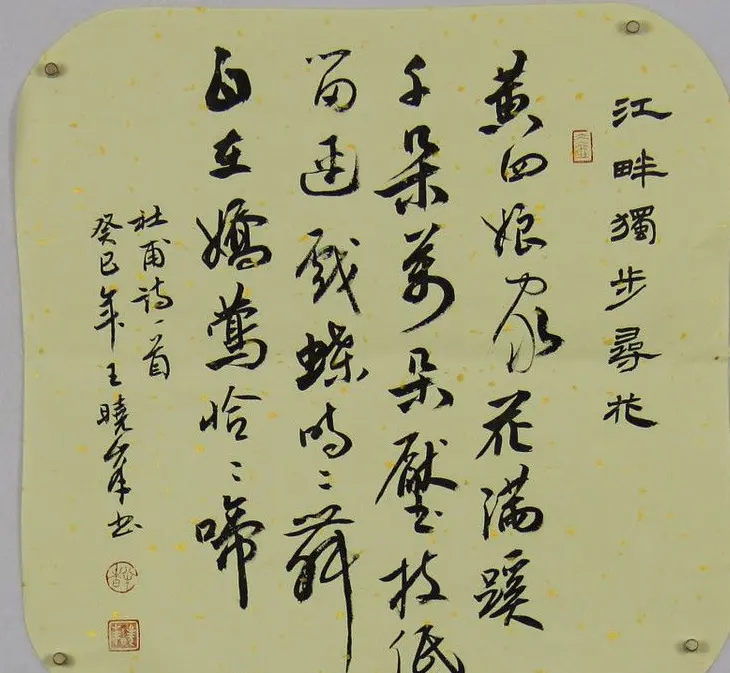 江畔獨步尋花
黄四娘家花满蹊
千朵萬朵壓枝低
留連戲蝶時〻舞
自在嬌鶯恰〻啼
杜甫詩一首
癸巳年王曉峯书